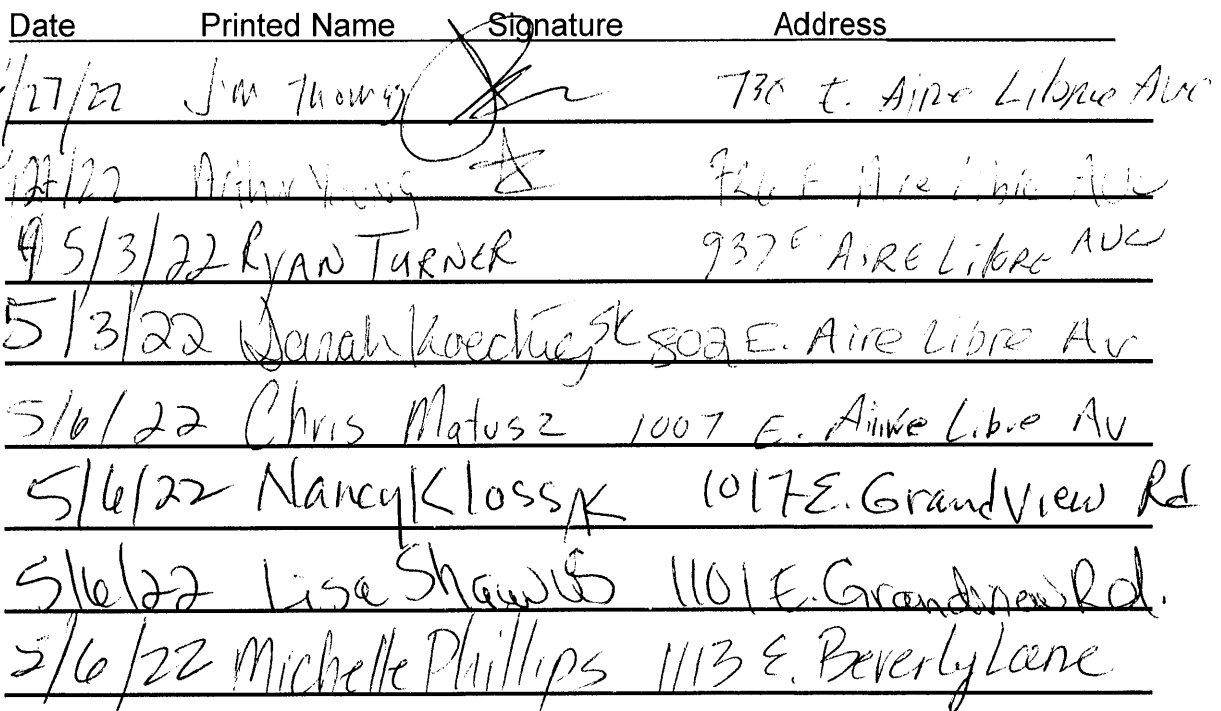 Date Printed Name Signature Address
/27/22 Jim Thomas 736 E. Aire Libre Ave
/22 Arthur Young E Aire Libre Ave
5/3/22 RYAN TURNER 937 E AIRE LibRE AVE
5/3/22 Sarah SK 802 E. Aire Libre Av
5/6/22 Chris Matusz 1007 E. Aire Libre Av
5/6/22 Nancy Kloss NK 1017 E. Grandview Rd
5/6/22 Lisa Shaw LS 1101 E. Grandview Rd.
5/6/22 Michelle Phillips 1113 E. Beverly Lane